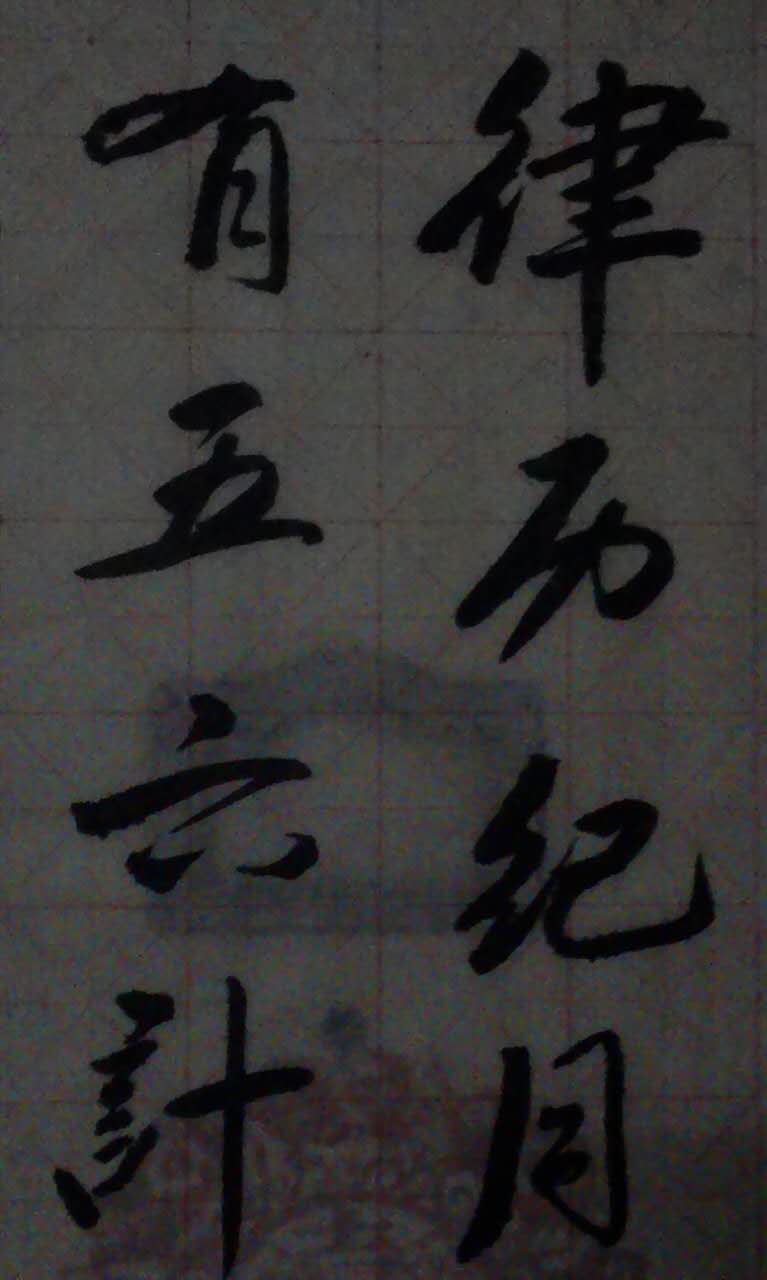 律历纪同
有五六計